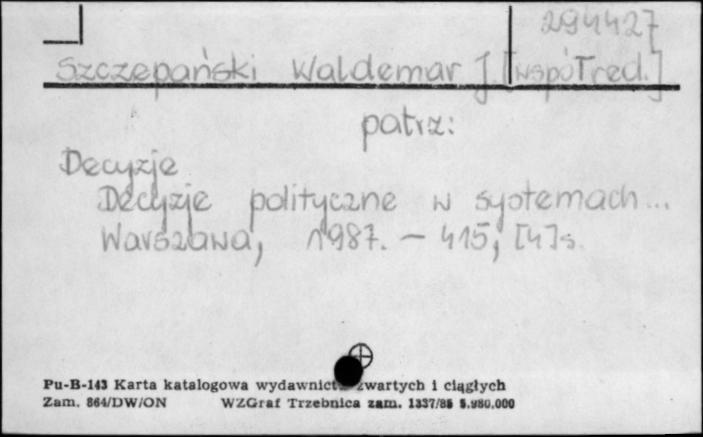 294427
Szczepański Waldemar J. [współred.]
patrz:
Decyzje
Decyzje polityczne w systemach...
Warszawa, 1987. — 415, [4] s.
Pu-B-143 Karta katalogowa wydawnictw zwartych i ciągłych
Zam. 864/DW/ON WZGraf Trzebnica zam. 1337/85 5.980.000